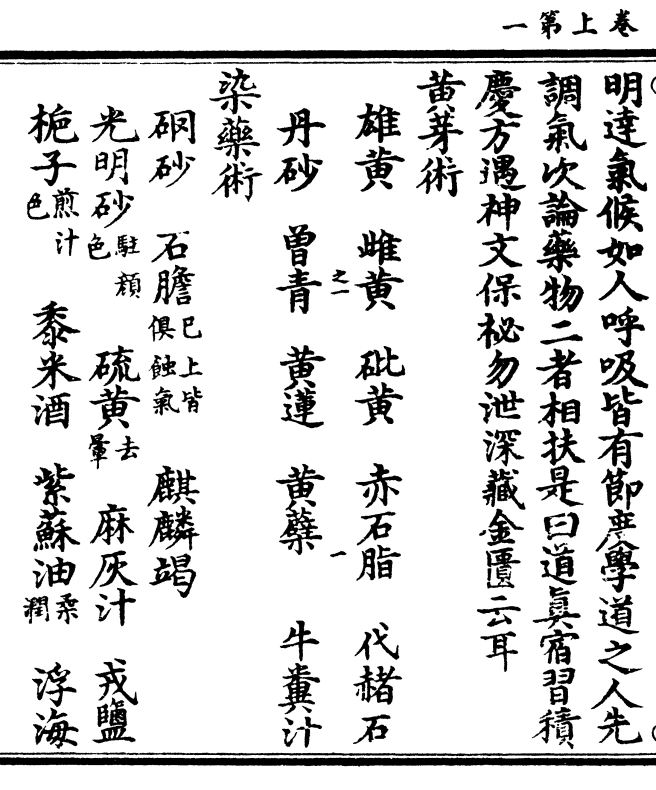 卷上第一
明達氣候如人呼吸皆有節度學道之人先
調氣次論藥物二者相扶是曰道眞宿習積
慶方遇神文保祕勿泄深藏金匱云耳
黄芽術
雄黄 雌黄之一 砒黄 赤石脂 代赭石
丹砂 曾青 黄蓮 黄蘗一 牛糞汁
染藥術
硇砂 石膽已上皆俱蝕氣 麒麟竭
光明砂駐顏色 硫黄去暈 麻灰汁 戎鹽
梔子煎汁色 黍米酒 紫蘇油柔潤 浮海